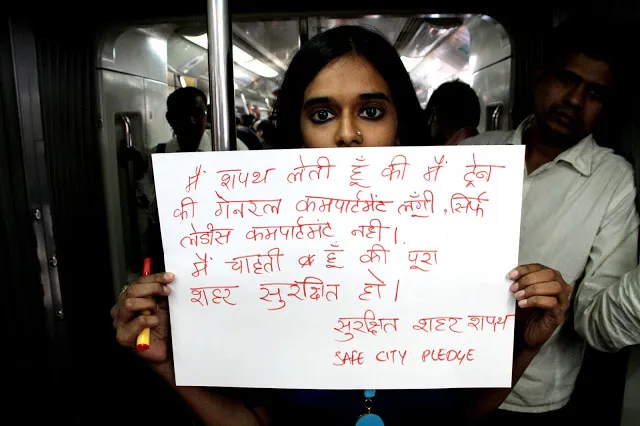 मैं शपथ लेती हूँ की मैं ट्रेन
की गेनरल कमपार्टमेंट लूँगी, सिर्फ
लेडीस कमपार्टमेंट नही।
मैं चाहती हूँ की पूरा
शहर सुरक्षित हो।
सुरक्षित शहर शपथ
SAFE CITY PLEDGE